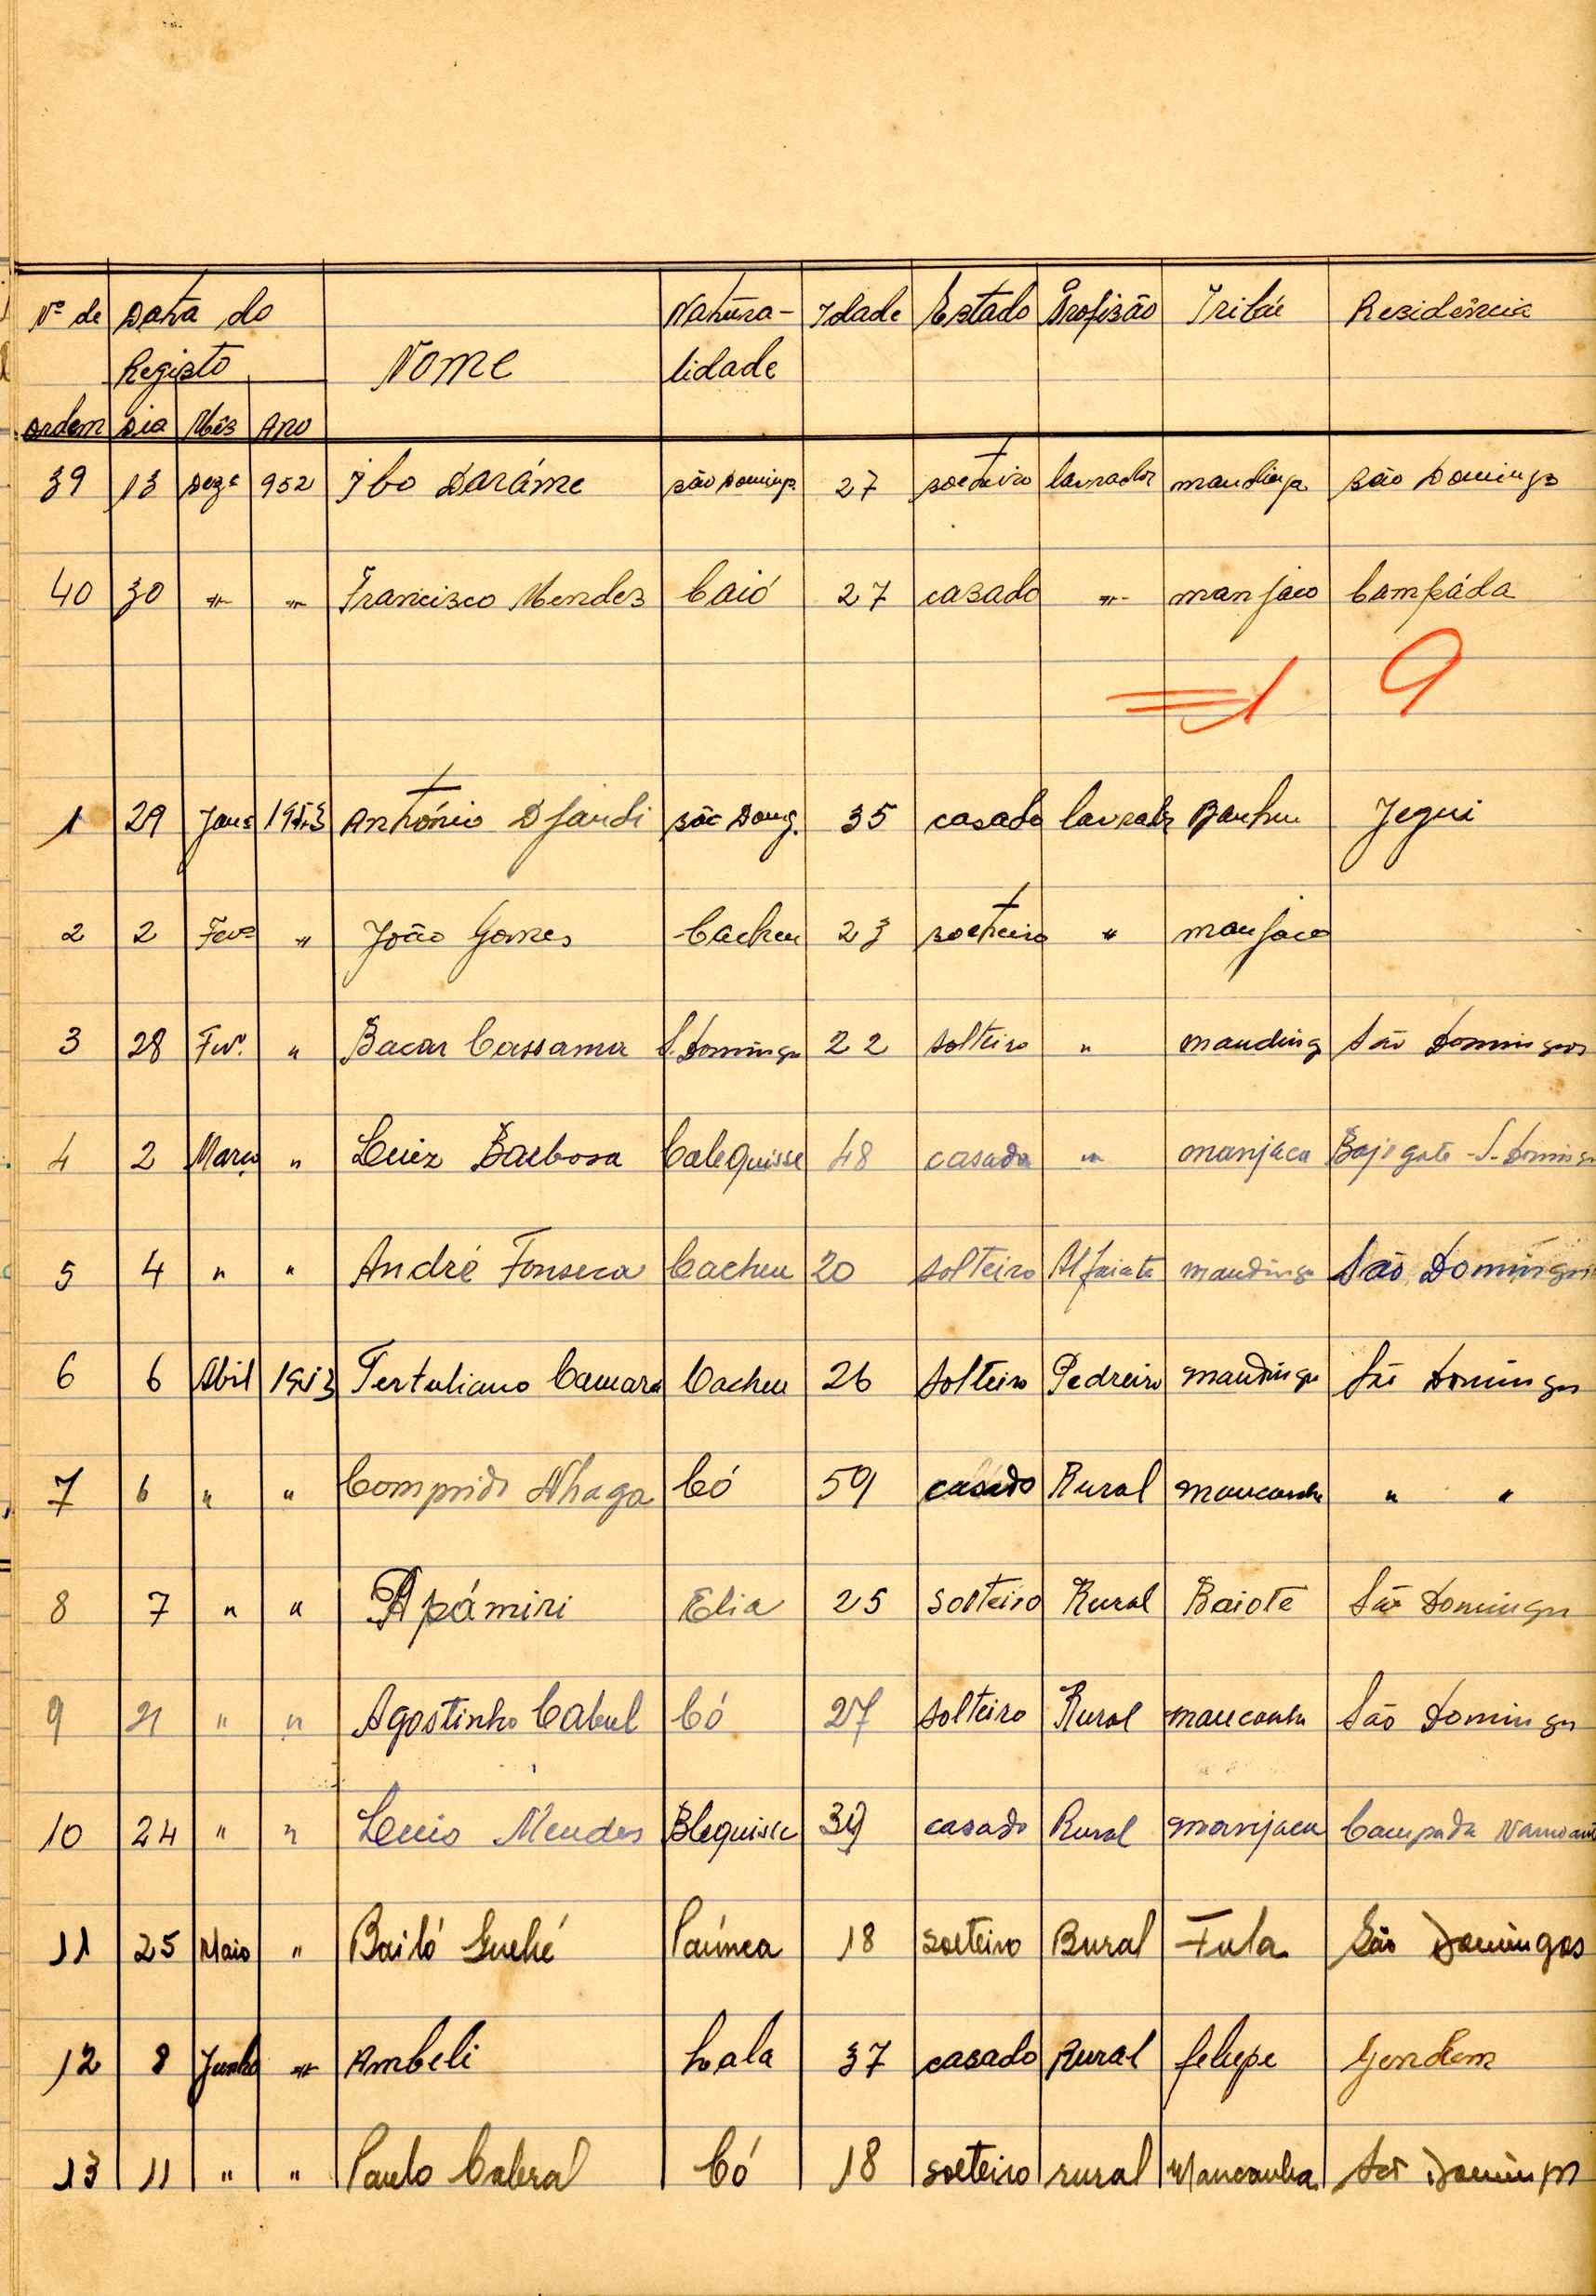 Nº de Data do Natura- Idade Estado Profisão Tribú Residência
Registo Nome lidade
ordem Dia Mês Ano
39 13 Dezº 952 Ibo Daráme São Domings 27 solteiro lavrador mandinga São Domingos
40 30 " " Francisco Mendes Caió 27 casado " manjaco Campáda
1 9
1 29 Janº 1953 António Djandi São Domg. 35 casado lavrador Banhu Jegui
2 2 Fevº " João Gomes Cacheu 23 solteiro " manjaco
3 28 Fevº. " Bacar Cassama S. Domingos 22 solteiro " manding São Domingos
4 2 Março " Luiz Barbosa Calequisse 48 casado " manjaca S. Domingos
5 4 " " André Fonseca Cacheu 20 solteiro Alfaiate mandinga São Domingos
6 6 Abil 1953 Tertuliano Camara Cacheu 26 solteiro Pedreiro mandinga São Domingos
7 6 " " Comprido Nhaga Có 59 casado Rural mancanha " "
8 7 " " Apámiri Elia 25 solteiro Rural Baiote São Domingos
9 21 " " Agostinho Cabul Có 27 solteiro Rural mancanha São Domingos
10 24 " " Lucio Mendes Blequisse 39 casado Rural manjaca Campada
11 25 Maio " Bailó Guehé Paúnca 18 solteiro Rural Fula São Domingos
12 8 Junho " Ambeli Lala 37 casado Rural felupe Gendem
13 11 " " Paulo Cabral Có 18 solteiro rural Mancanha São Domingos